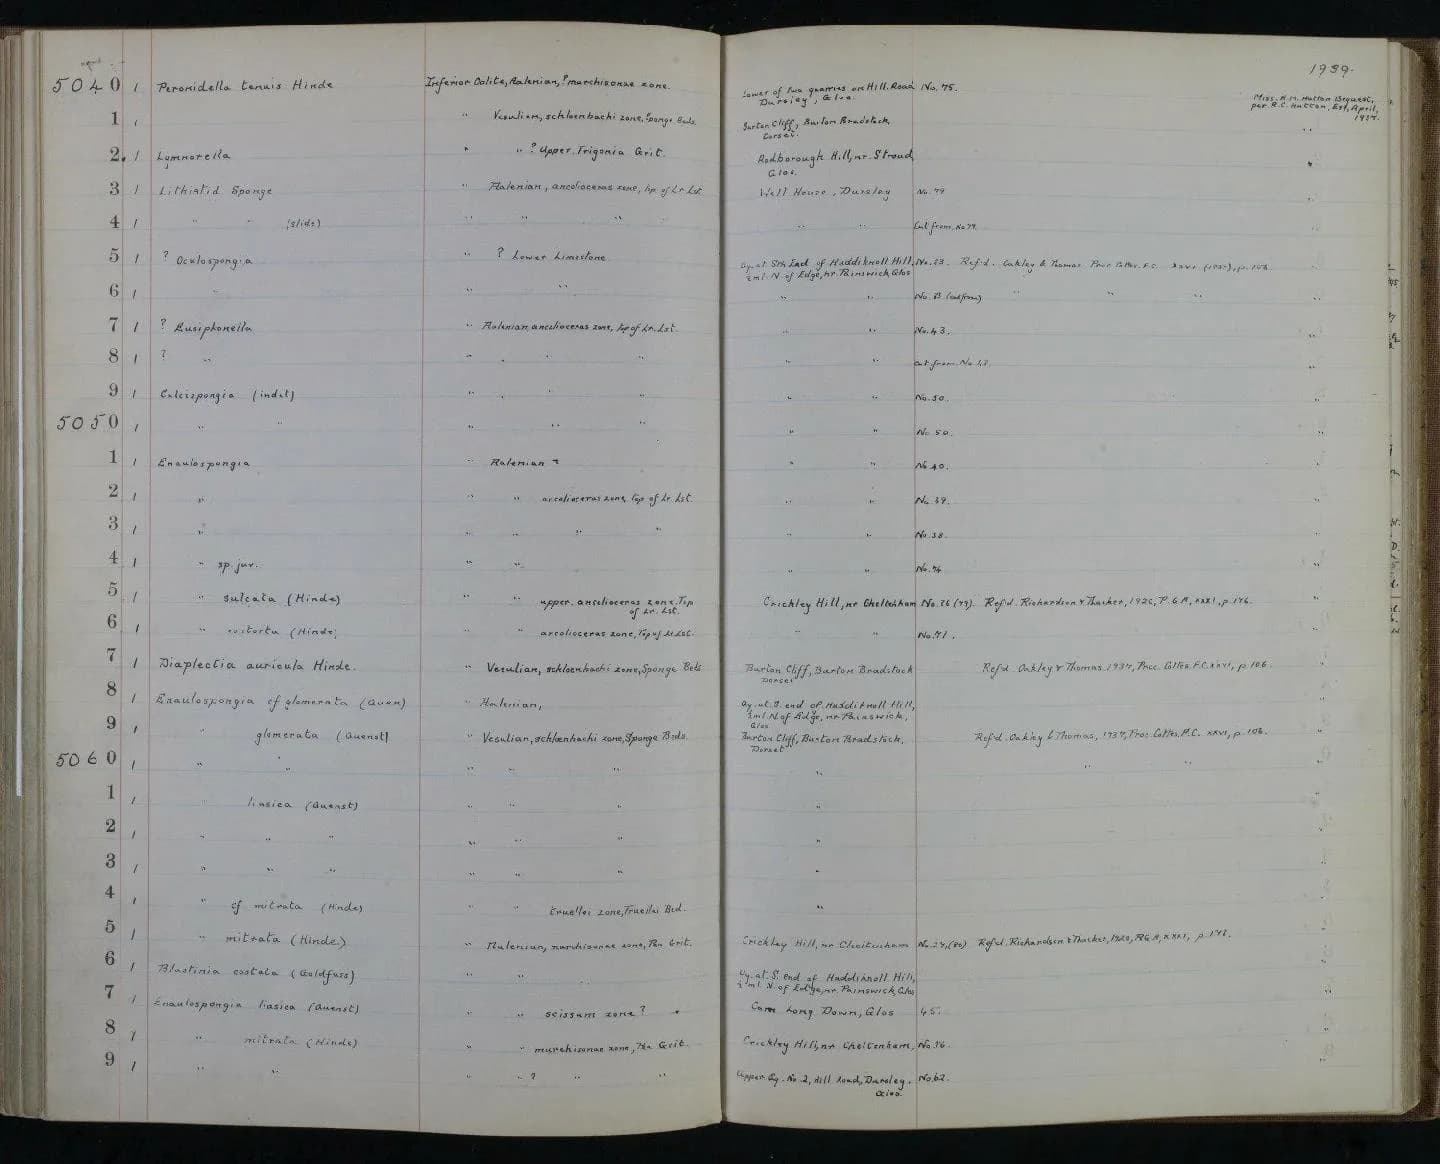 1939.
5040 1 Peronidella tenuis Hinde Inferior Oolite, Aalenian, ? murchisonae zone. Lower of two quarries on Hill Road No. 75. Miss. H.M. Hutton Bequest,
Dursley, Glos. per. R.C. Hutton, Esq, April,
1937.
1 , " Vesulian, schloenbachi zone, Sponge Beds. Burton Cliff, Burton Bradstock, "
Dorset.
2. 1 Lymnorella " " ? Upper Trigonia Grit. Rodborough Hill, nr. Stroud, "
Glos.
3 1 Lithistid Sponge " Aalenian, ancolioceras zone, top of Lr. Lst. Well House, Dursley No. 79 "
4 1 " " (slide) " " " " " Cut from No 79.
5 1 ? Oculospongia " ? Lower Limestone Qy. at Sth End of Haddiknoll Hill, No. 23. Ref'd. Oakley & Thomas Proc Cottes. F.C. xxvi (1937), p.
½ml. N. of Edge, nr. Painswick, Glos
6 1 " " " " " No. (cut from) " " " "
7 1 ? Eusiphonella " Aalenian ancolioceras zone, top of Lr. Lst. " " No. 43. "
8 1 ? " " " " " " " cut from No "
9 1 Calcispongia (indet) " " " " " " No. 50. "
5050 , " " " " " " " No 50. "
1 1 Enaulospongia " Aalenian " " No 40. "
2 , " " " ancolioceras zone, Top of Lr. Lst. " " No. 39. "
3 1 " " " " " " No. 38. "
4 1 " sp. juv. " " " " No. 74 "
5 1 " sulcata (Hinde) " " upper. ancolioceras zone. Top Crickley Hill, nr Cheltenham No. 26 (79). Ref'd. Richardson & Thacker, 1920, P.G.A, xxxi, p. 176. "
of Lr. Lst.
6 1 " contorta (Hinde) " ancolioceras zone, Top of Lr Lst. " " No. 71. "
7 1 Diaplectia auricula Hinde. " Vesulian, schloenbachi zone, Sponge Beds Burton Cliff, Burton Bradstock Ref'd. Oakley & Thomas. 1937, Proc. Cottes. F.C. xxvi, p. 106. "
Dorset
8 1 Enaulospongia cf glomerata (Quen) " Aalenian, Qy. at S. end of Haddiknoll Hill, "
½ml N. of Edge, nr Painswick,
Glos
9 , " glomerata (Quenst) " Vesulian, schloenbachi zone, Sponge Beds. Burton Cliff, Burton Bradstock, Ref'd. Oakley & Thomas, 1937, Proc. Cottes. F.C. xxvi, p. 106. "
Dorset
5060 , " " " " " " " " "
1 , " liasica (Quenst) " " " " "
2 , " " " " " " "
3 , " " " " " "
4 , " cf mitrata (Hinde) " " truellei zone, Truellei Bed. "
5 , " mitrata (Hinde) " Aalenian, murchisonae zone, Pea Grit. Crickley Hill, nr Cheltenham No. 27, (80) Ref'd. Richardson & Thacker, 1920, P.G.A, xxxi, p. 176. "
6 , Blastinia costata (Goldfuss) " " Qy. at S. end of Haddiknoll Hill, "
½ml N. of Edge, nr. Painswick, Glos
7 , Enaulospongia liasica (Quenst) " " scissum zone ? Cam Long Down, Glos 45. "
8 , " mitrata (Hinde) " " murchisonae zone, Pea Grit. Crickley Hill, nr Cheltenham, No. 36. "
9 , " " " " ? " " Upper Qy. No. 2, Hill Road, Dursley. No. 62. "
Glos.